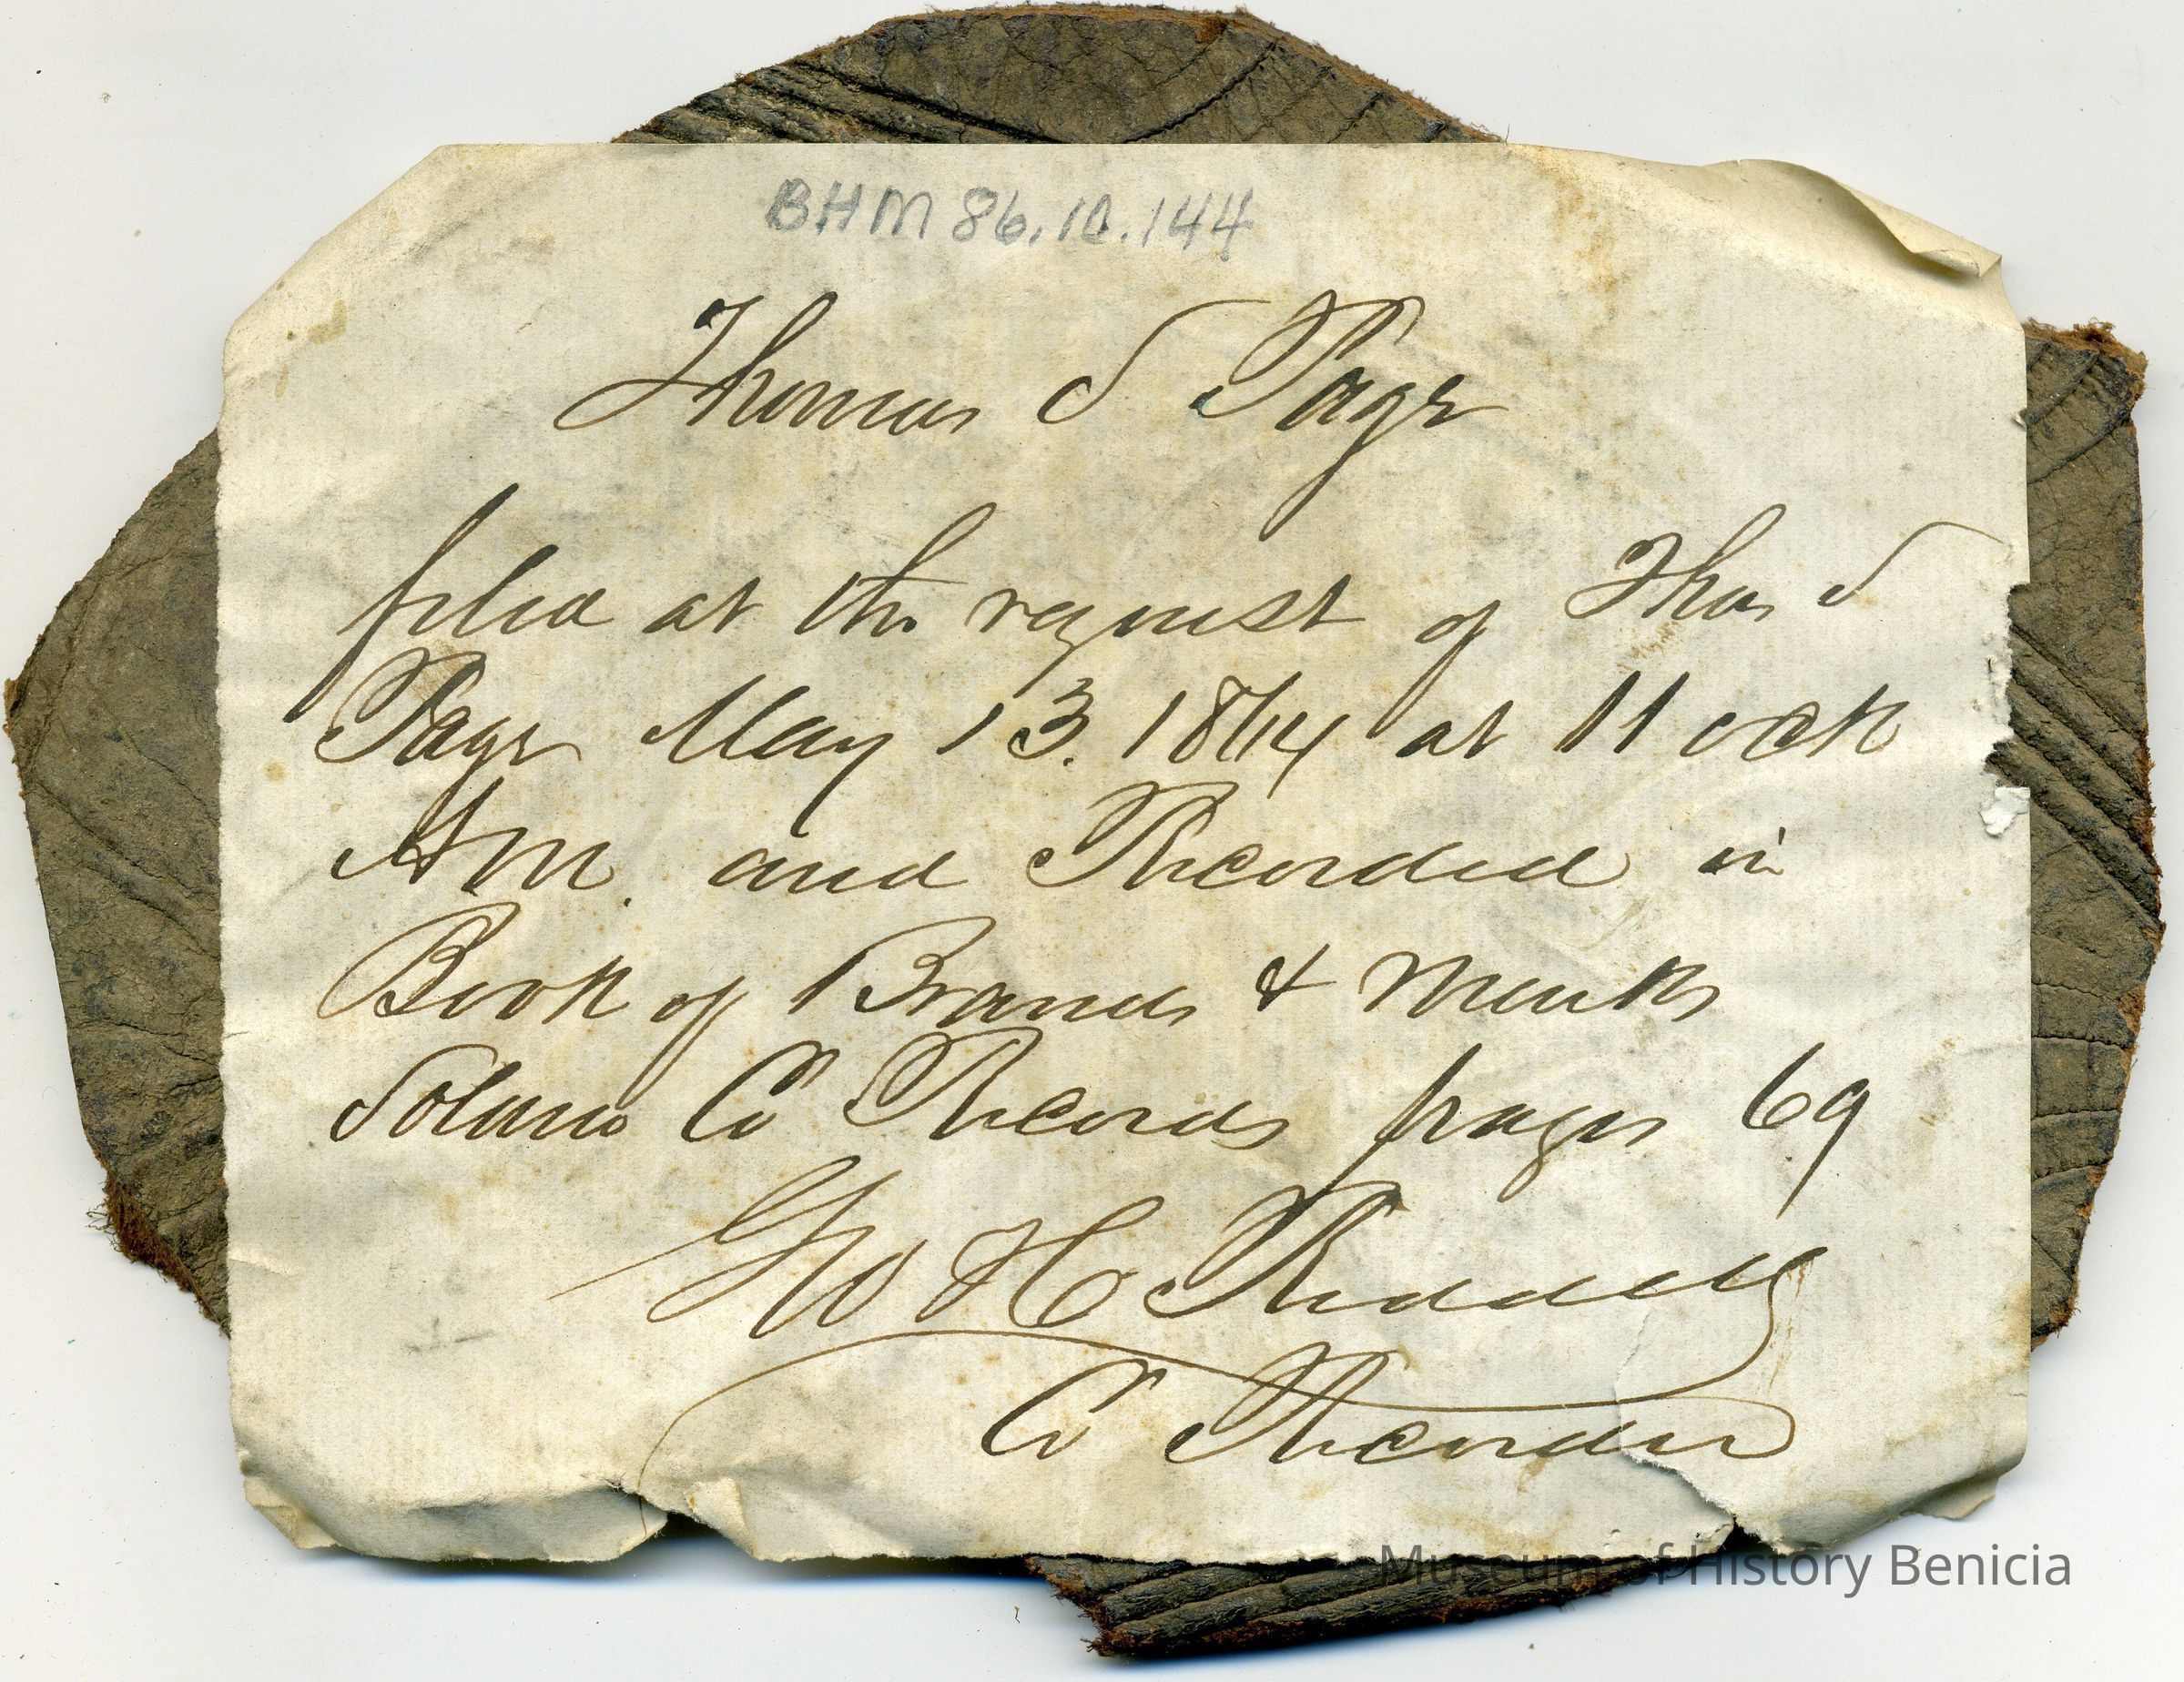 BHM 86.10.144
Thomas S Page
filed at the request of Thos S
Page May 13. 1864 at 11 ock
AM. and Recorded in
Book of Brands & Marks
Solano Co Records pages 69
Geo H Riddell
Co Recorder
Museum of History Benicia